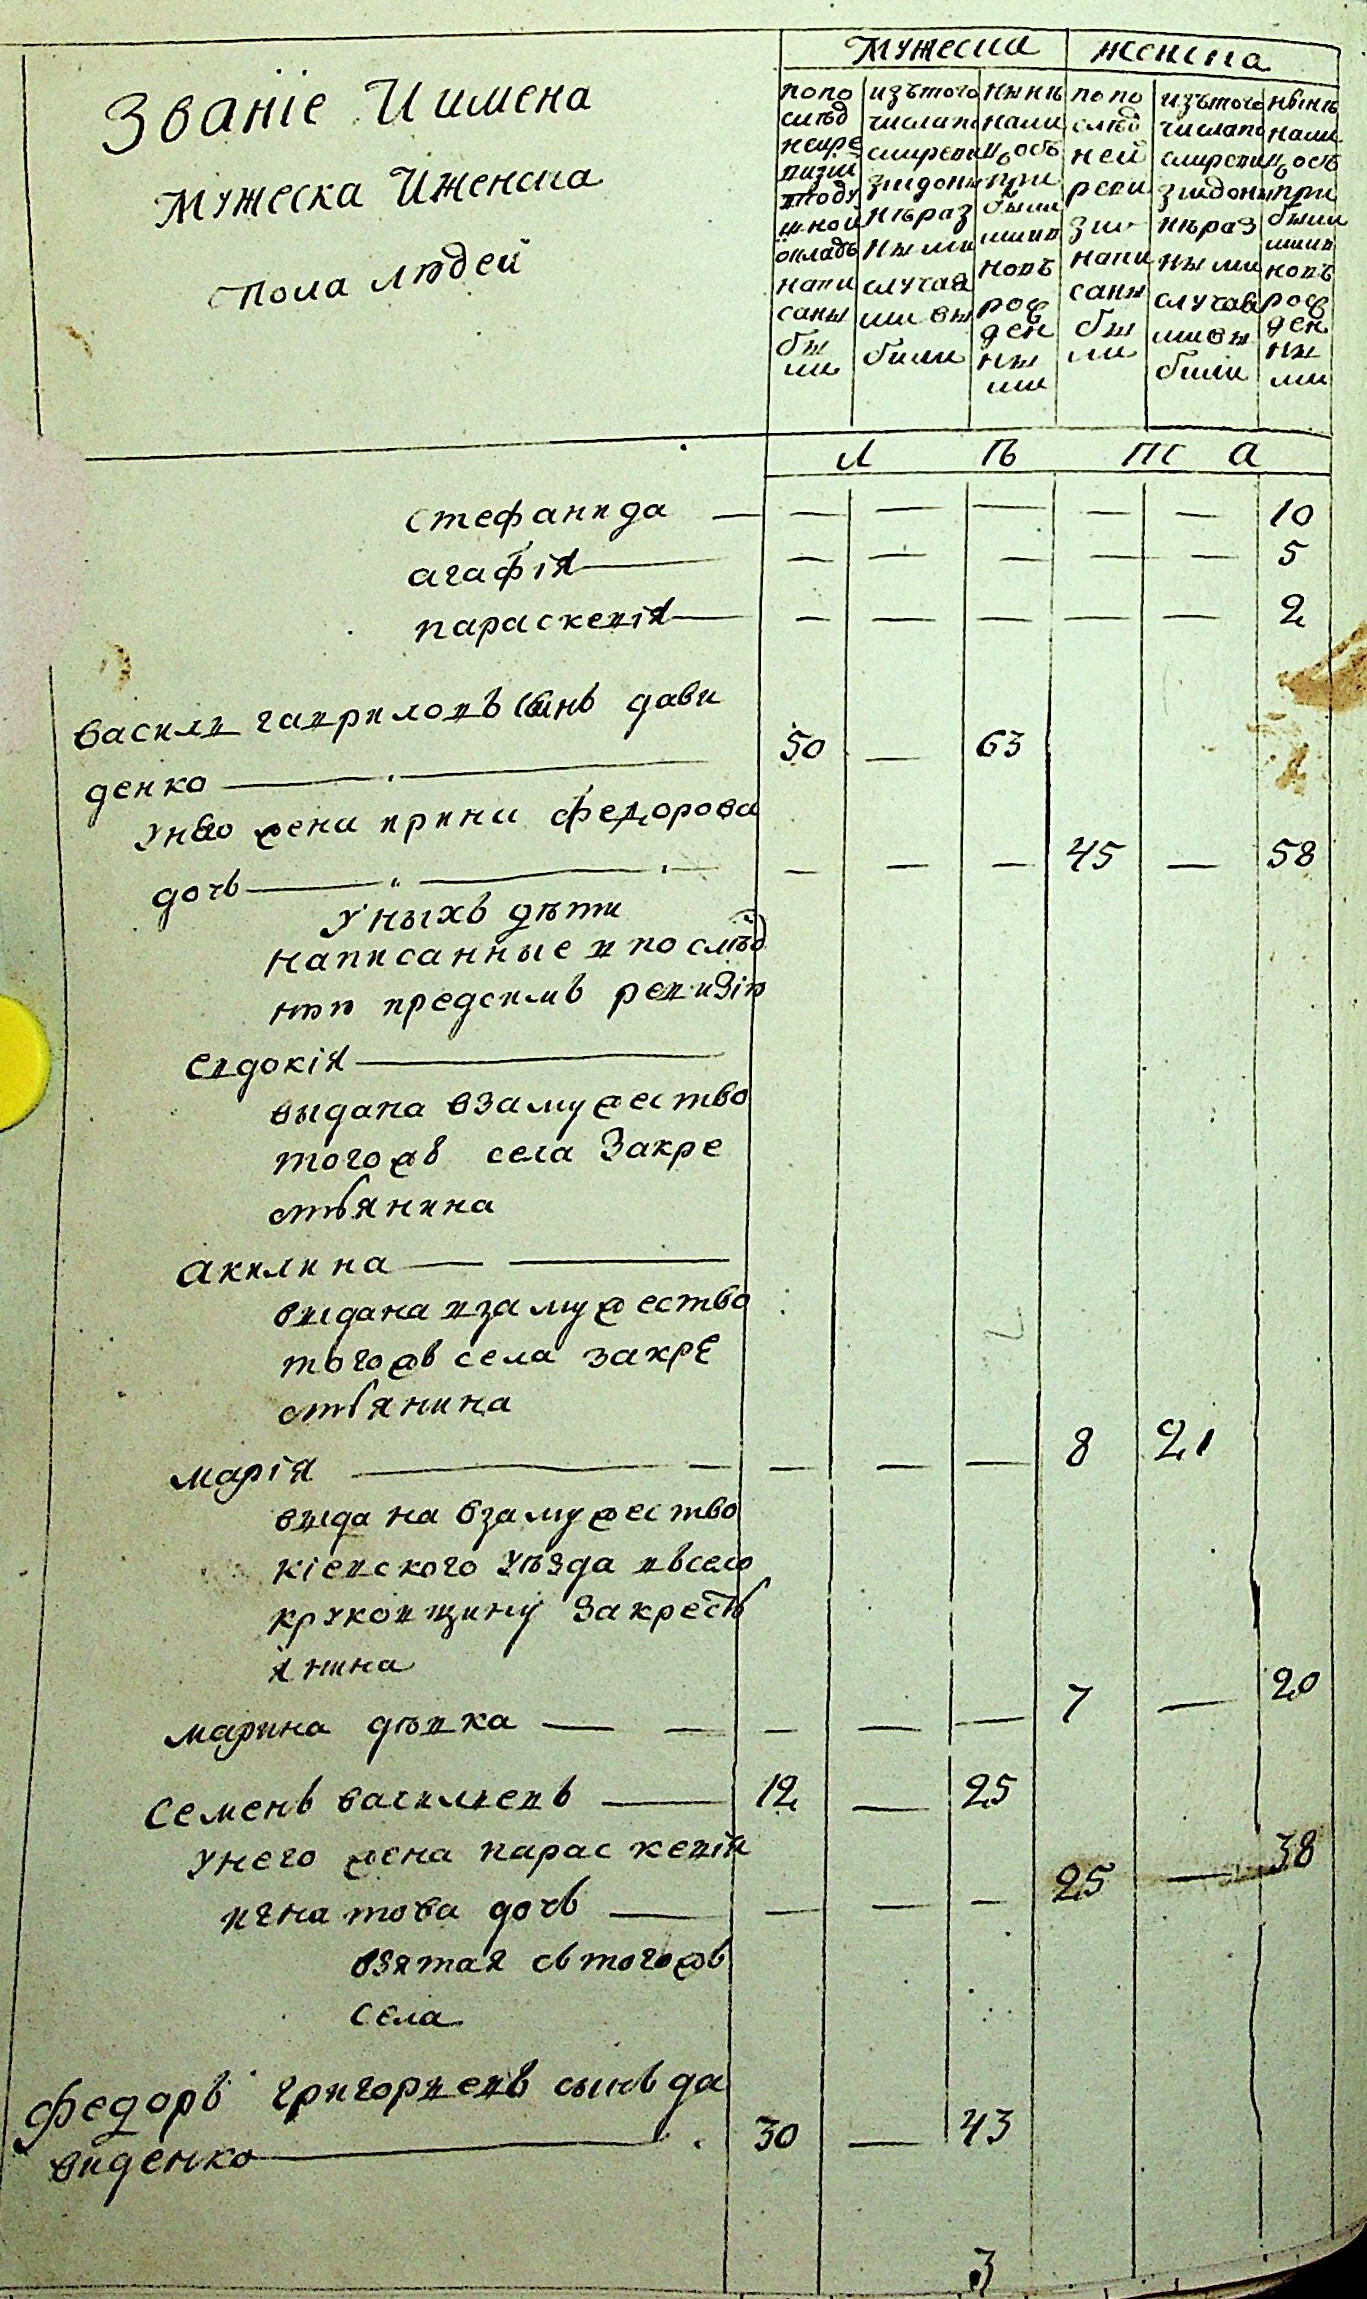 Мужеска женска
Званіе И имена
Мужеска Женска
пола людей
по по слѣд ней ре визіи подуш ной окладъ напи саны бы ли
изътого числа по слѣ ревизіи до нынѣ раз ными случая ми вы были
нынѣ на ли цо съ при былы ми и в новь рож ден ны ми
по по слѣд ней реви зіи напи саны бы ли
изътого числа по слѣ ревизіи до нынѣ раз ными случая ми вы были
нынѣ на ли цо съ при былы ми и в новь рож ден ны ми
л ѣ т а
стефанида — — — — — — 10
агафія — — — — — — 5
параскевія — — — — — — 2
василй гавриловъ сынъ дави
денко — 50 — 63
унего жена ирина федорова
дочь — — — — 45 — 58
у ныхъ дѣти
написанные в послѣд
нѣй предсимъ ревизіи
евдокія —
выдана взамужество
тогожъ села за кре
стьянина
акилина — —
выдана взамужество
тогожъ села за кре
стьянина
марія — — — — — 8 21
выдана взамужество
кіевского уѣзда въ село
круковщину за кресть
янина
марина дѣвка — — — — — 7 — 20
семенъ василиевъ — 12 — 25
унего жена параскевія
игнатова дочь — — — — 25 — 38
взятая съ тогожъ
села
федоръ григориевъ сынъ да
виденко — 30 — 43
3